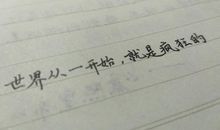 世界从一开始，就是疯狂的